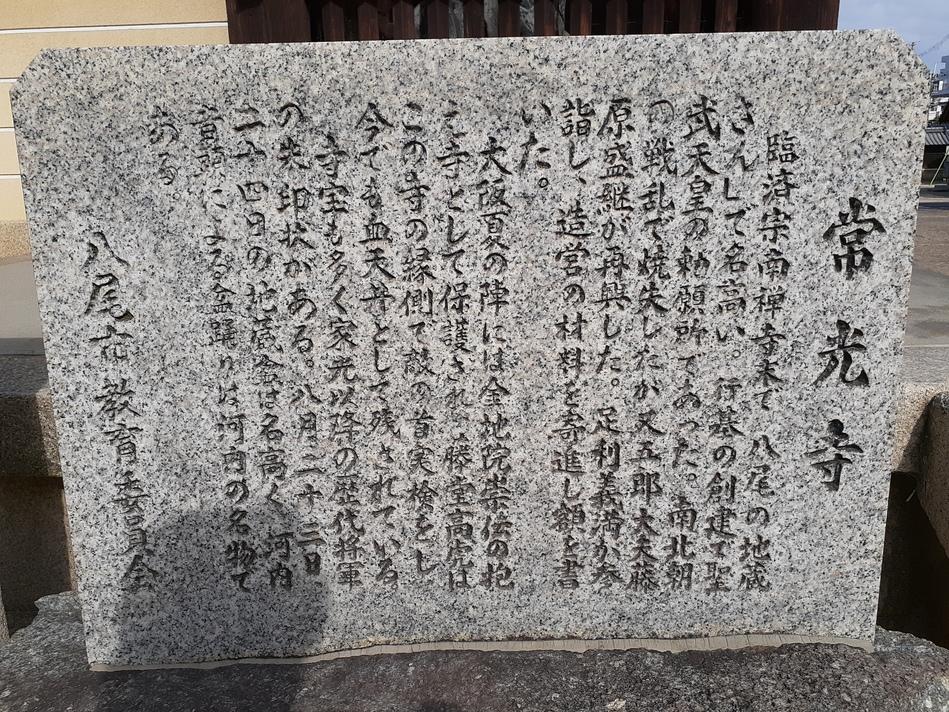 常光寺
臨済宗南禅寺末で 八尾の地蔵
さんして名高い。行基の創建で聖
武天皇の勅願所であった。南北朝
の戦乱で焼失したが又五郎大夫藤
原盛継が再興した。足利義満が参
詣し、造営の材料を寄進し額を書
いた。
大阪夏の陣には金地院崇伝の抱
え寺として保護され藤堂高虎は
この寺の縁側で敵の首実検をし
今でも血天井として残されている
寺宝も多く家光以降の歴代将軍
の朱印状がある。八月二十三日
二十四日の地蔵会は名高く 河内
音頭による盆踊りは河内の名物で
ある
八尾市教育委員会